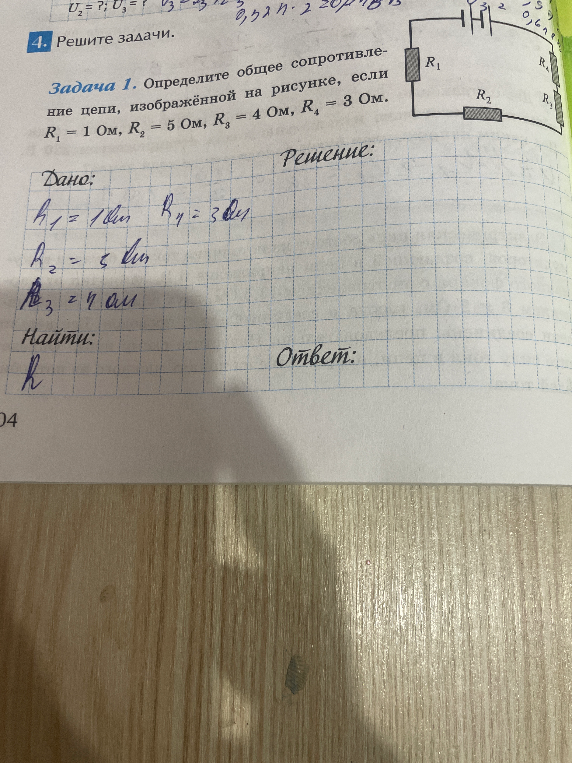 U₂ = ?; U₃ = ?
4. Решите задачи.
Задача 1. Определите общее сопротивле-
ние цепи, изображённой на рисунке, если
R₁ = 1 Ом, R₂ = 5 Ом, R₃ = 4 Ом, R₄ = 3 Ом.
R₁
R₂
Дано:
Решение:
R₁ = 1 Ом R₄ = 3 Ом
R₂ = 5 Ом
R₃ = 4 Ом
Найти:
R
Ответ:
04